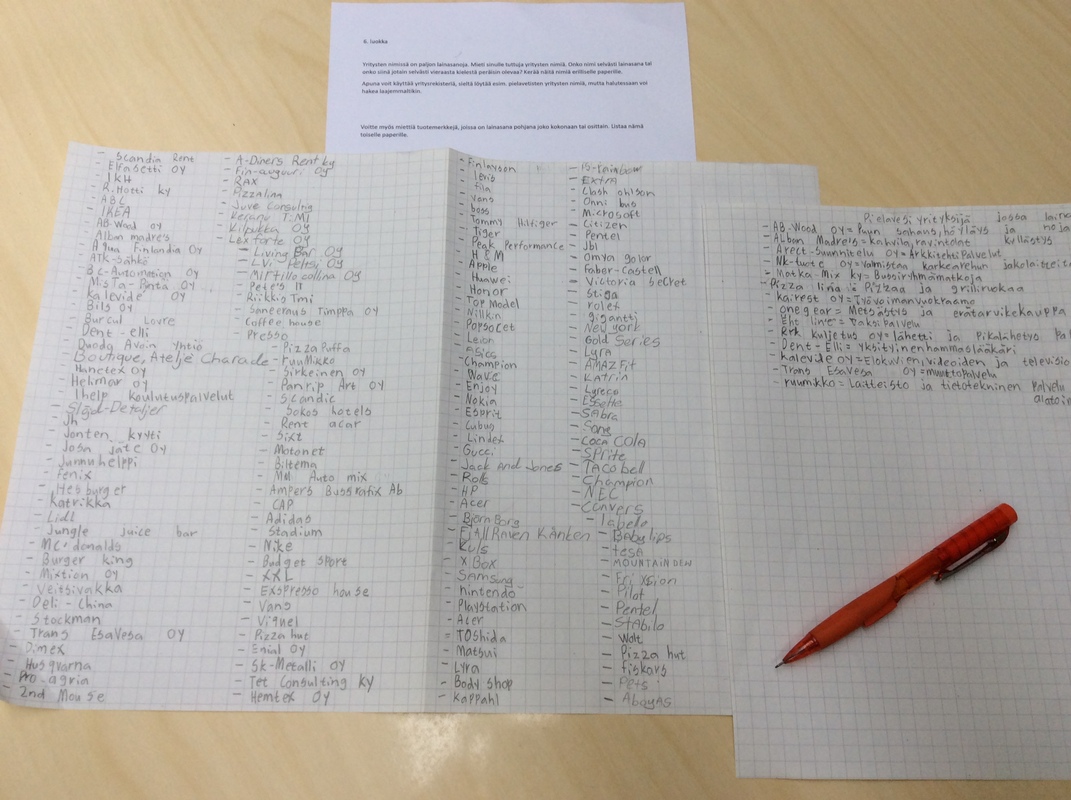 6. luokka
Yritysten nimissä on paljon lainasanoja. Mieti sinulle tuttuja yritysten nimiä. Onko nimi selvästi lainasana tai
onko siinä jotain selvästi vieraasta kielestä peräisin olevaa? Kerää näitä nimiä erilliselle paperille.
Apuna voit käyttää yritysrekisteriä, sieltä löytää esim. pielavetisten yritysten nimiä, mutta halutessaan voi
hakea laajemmaltikin.
Voitte myös miettiä tuotemerkkejä, joissa on lainasana pohjana joko kokonaan tai osittain. Listaa nämä
toiselle paperille.
- Scandia Rent
- Elfasetti OY
- JKH
- R.Hotti ky
- ABC
- IKEA
- AB-Wood oy
- Alban madre's
- Aqua Finlandia OY
- ATK-Sähkö
- BC-Automation OY
- Mista-Pinta OY
- Kalevide OY
- Bils OY
- Burcul Louvre
- Dent-elli
- Duodg Avoin Yhtiö
- Boutique, Ateljé Charade
- Hanetex OY
- Helimar OY
- Ihelp koulutuspalvelut
- Slöjd-Detaljer
- Jh
- Jonten kyyti
- Josa Jate OY
- Junnuhelppi
- Fenix
- Hesburger
- Katrikka
- Lidl
- Jungle juice bar
- MC-donalds
- Burger king
- Mixtion OY
- Veitsivakka
- Deli-China
- Stockman
- Trans Esavesa OY
- Dimex
- Husqvarna
- Pro-agria
- 2nd Mouse
- A-Diners Rent ky
- Fin-auguuri OY
- RAX
- Pizzalina
- Juve Consultig
- Kilpukka OY
- Lex forte OY
- Living Bar OY
- LVI-Peltsi OY
- Mirtillo collina OY
- Pete's It
- Riikkis Tmi
- Saneeraus Timppa OY
- Coffee house
- Presso
- Pizza Buffa
- Ruumikko
- Sirkeinen OY
- Panrip Art OY
- Scandic
- Sokos hotels
- Rent acar
- Sixt
- Motonet
- Biltema
- MM Auto mix
- Ampers Bussgrafix Ab
- CAP
- Adidas
- Stadium
- Nike
- Budget sport
- XXL
- Exspresso house
- Vans
- Viguel
- Pizza hut
- Enial OY
- Sk-Metalli OY
- Tet Consulting ky
- Hemtex OY
- Finlayson
- levis
- fila
- vans
- boss
- Tommy Hilfiger
- Tiger
- Peak Performance
- H&M
- Apple
- Huawei
- Honor
- Top Model
- Nillkin
- Popsocet
- Leion
- Asics
- Champion
- Wave
- Enjoy
- Nokia
- Esprit
- Cubus
- Lindex
- Gucci
- Jack And Jones
- Rolls
- HP
- Acer
- Björn Borg
- Fjällräven Kånken
- Kuls
- X Box
- Samsung
- nintendo
- Playstation
- Acer
- TOShida
- Matsui
- Lyra
- Body shop
- Kappahl
- 15-rainbow
- Extra
- Clash ohlson
- Onni bus
- Microsoft
- Citizen
- Pentel
- Jbl
- Omya golor
- Faber-Castell
- Victoria secret
- Stiga
- rolex
- gigantti
- New york
- Gold Series
- Lyra
- AMAZFit
- KATRIN
- Lyreco
- Essette
- Sabra
- Sony
- Coca COLA
- SPrite
- TACO bell
- Champion
- NEC
- Convers
- labello
- Babylips
- tesa
- MOUNTAIN DEW
- Frixsion
- Pilot
- Pentel
- Stabilo
- Wolt
- Pizza hut
- fiskars
- Pets
- Aboyas
Pielavesi yrityksiä jossa laina
- AB-Wood oy = Puun sahaus, höyläys ja kyllästys
- Alban Madres = Kahvila, ravintolat
- Arect-Suunnitelu OY = Arkkitehti Palvelut
- Nk-tuote oy = Valmistaa karkearehun jakolaitteita
- Matka-Mix ky = Bussiryhmämatkoja
- Pizza lina = Pizzaa ja grilliruokaa
- kairest oy = Työvoimanvuokraamo
- one gear = Metsästys ja erätarvikekauppa
- Eht line = Taksipalvelu
- Rrk kuljetus oy = lähetti ja Pikalähetys Pa
- Dent-Elli = Yksityinenhammaslääkäri
- kalevide oy = Elokuvien, videoiden ja televisio
- Trans Esavesa OY = muuttopalvelu
- ruumikko = Laitteisto ja tietotekninen palvelu